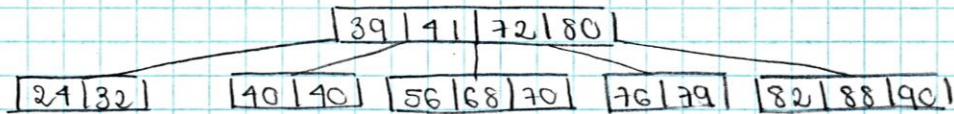 39 41 72 80
24 32 40 40 56 68 70 76 79 82 88 90